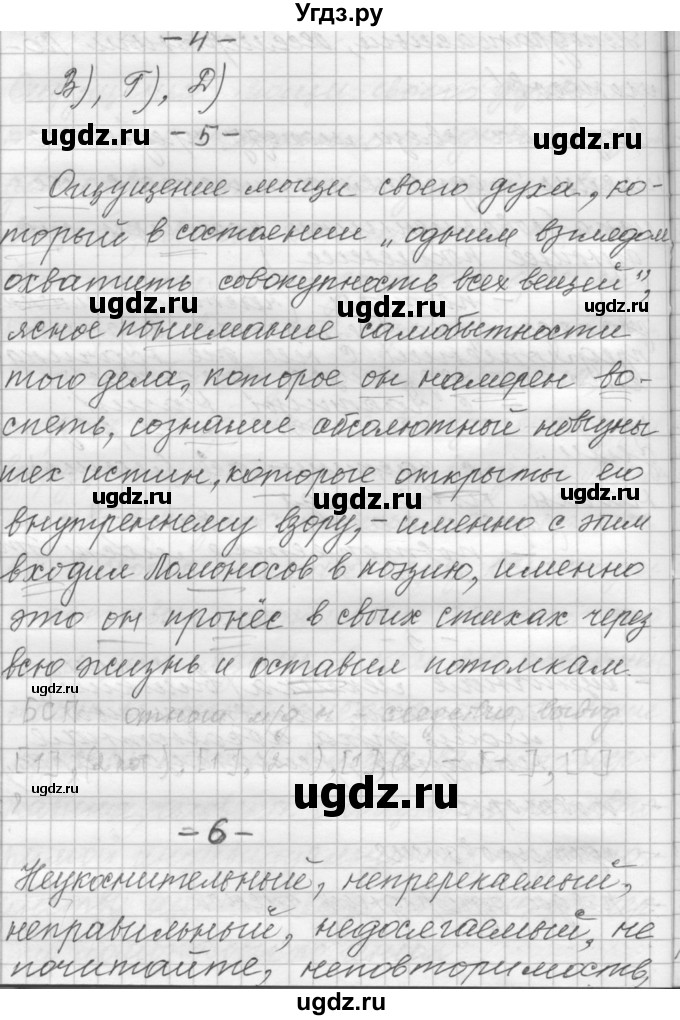 Угдз.ру
-4-
В), Г), Д)
ugdz.ru -5- ugdz.ru
Ощущение мощи своего духа, ко-
торый в состоянии „одним взглядом
охватить совокупность всех вещей",
ugdz.ru ugdz.ru
ясное понимание самобытности
того дела, которое он намерен во-
спеть, сознание абсолютный новизны
ugdz.ru ugdz.ru
тех истин, которые открыты его
ugdz.ru ugdz.ru ugdz.ru
внутреннему взору, - именно с этим
входил Ломоносов в поэзию, именно
это он пронёс в своих стихах через
всю жизнь и оставил потомкам.
ugdz.ru
БСП
ugdz.ru
ugdz.ru
-6-
ugdz.ru ugdz.ru
Неукоснительный, непререкаемый,
неправильный, недосягаемый, не
почитайте, неповторимость,
ugdz.ru